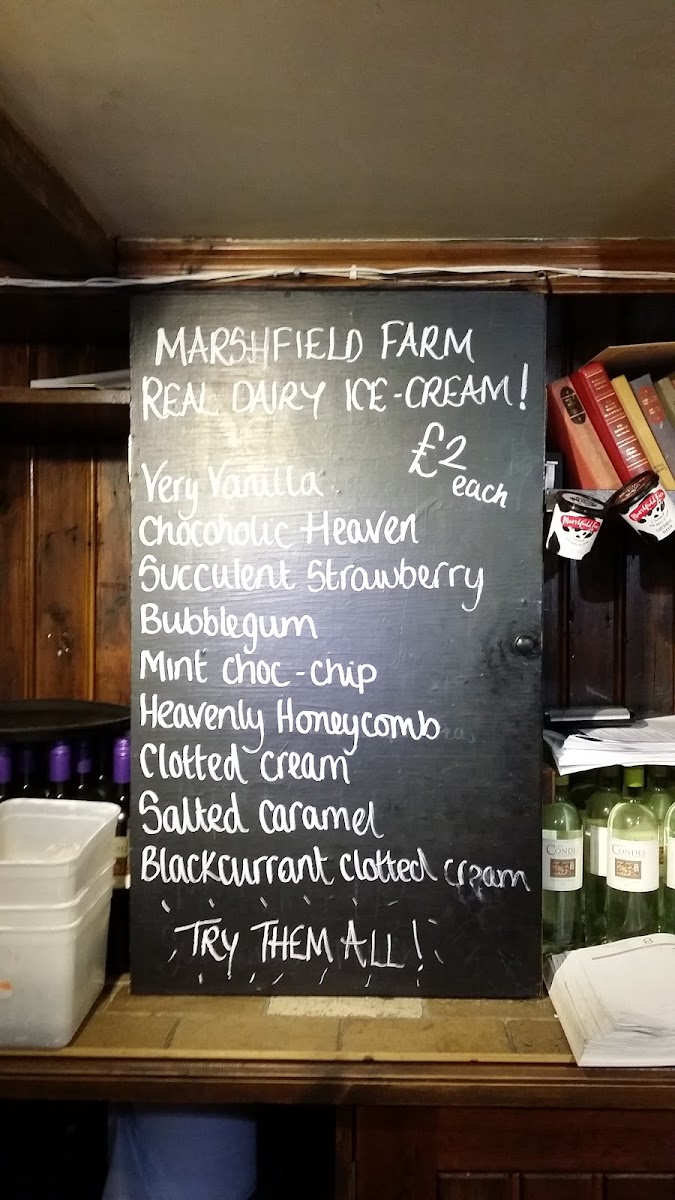 MARSHFIELD FARM
REAL DAIRY ICE-CREAM!
£2
each
Very Vanilla
Chocoholic Heaven
Succulent Strawberry
Bubblegum
Mint choc-chip
Heavenly Honeycomb
Clotted cream
Salted caramel
Blackcurrant clotted cream
TRY THEM ALL!
Marshfield Farm
CONDES
CONDES